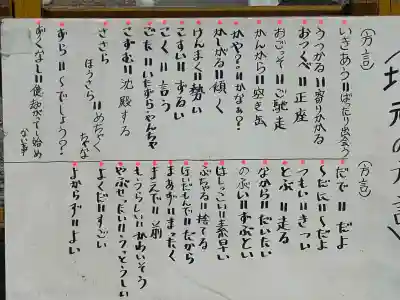 地元の方言
（方言）
いきあう＝ばったり出会う
うつかる＝寄りかかる
おつくべ＝正座
おごっそ＝ご馳走
かんから＝空き缶
かや？＝かなぁ？
かしがる＝傾く
けんまく＝勢い
こすい＝ずるい
こく＝言う
ごた＝いたずら、やんちゃ
こずむ＝沈殿する
ささら
ほうさら＝めちゃくちゃな
ずら＝〜でしょう？
ずくなし＝億劫がって始めない事
（方言）
だで＝だよ
〜だに＝〜だよ
つもい＝きつい
とぶ＝走る
なから＝だいたい
のぶい＝ずぶとい
はしっこい＝素早い
ぶちゃる＝捨てる
ほいだもんで＝だから
まあず＝まったく
まえで＝前
もうらしい＝かわいそう
やぶせったい＝うっとうしい
よくだ＝すごい
よからず＝よい